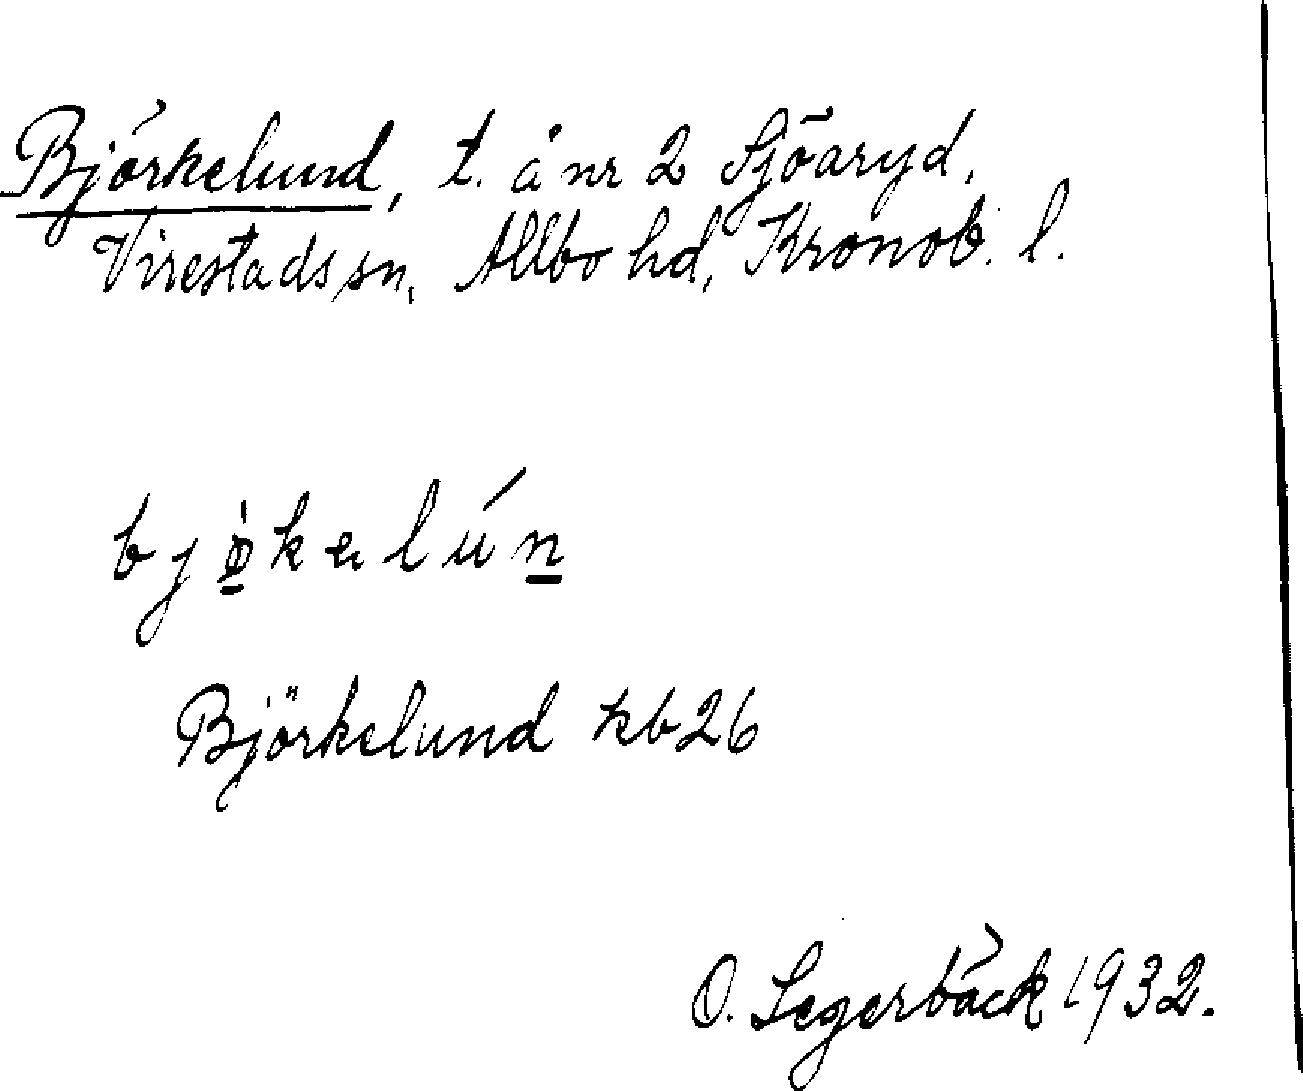 Björkelund, t. å nr 2 Sjöaryd,
Virestads sn, Allbo hd, Kronob. l.
bjø̀kəlún
Björkelund kb 26
O. Segerbäck 1932.